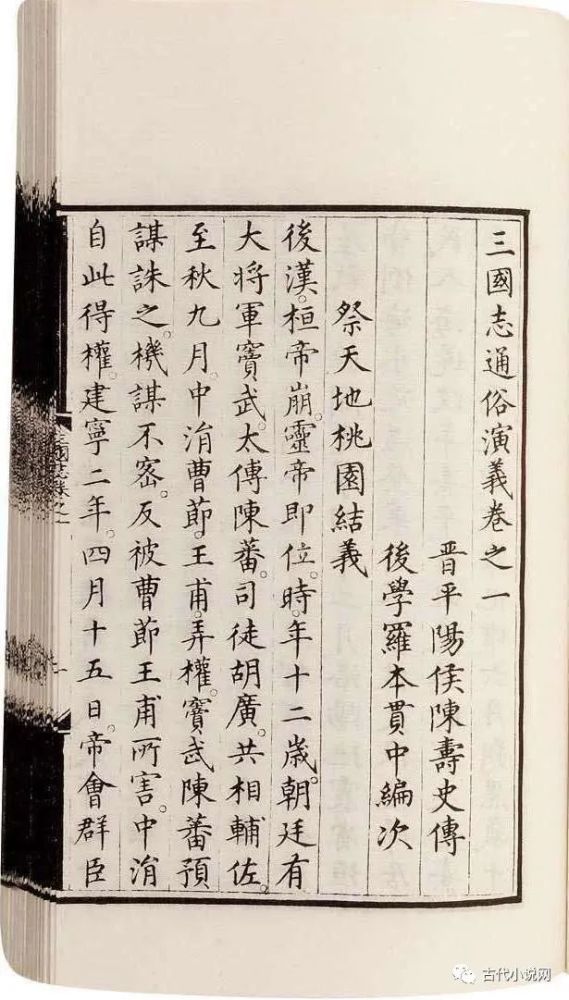 三國志通俗演義卷之一
晋平陽侯陳壽史傳
後學羅本貫中編次
祭天地桃園結義
後漢。桓帝崩。靈帝即位。時年十二歲。朝廷有
大將軍竇武。太傳陳蕃。司徒胡廣。共相輔佐。
至秋九月。中涓曹節。王甫。弄權。竇武陳蕃預
謀誅之。機謀不密。反被曹節王甫所害。中涓
自此得權。建寧二年。四月十五日。帝會群臣
古代小说网